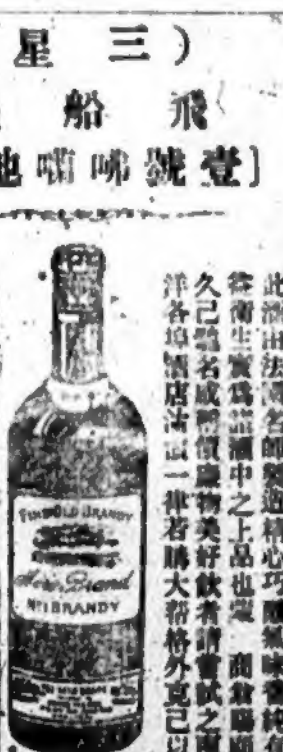 (三星
飛船
[壹號咈囒地
此酒由法國名師製造精心巧釀氣味香純有
益衛生實為諸酒中之上品也蒙 商
久已馳名咸稱價廉物美好飲者請嘗試之
洋各埠酒店沽 一律若購大帮格外克己以
FINE OLD BRANDY
Aero Brand
No 1 BRANDY